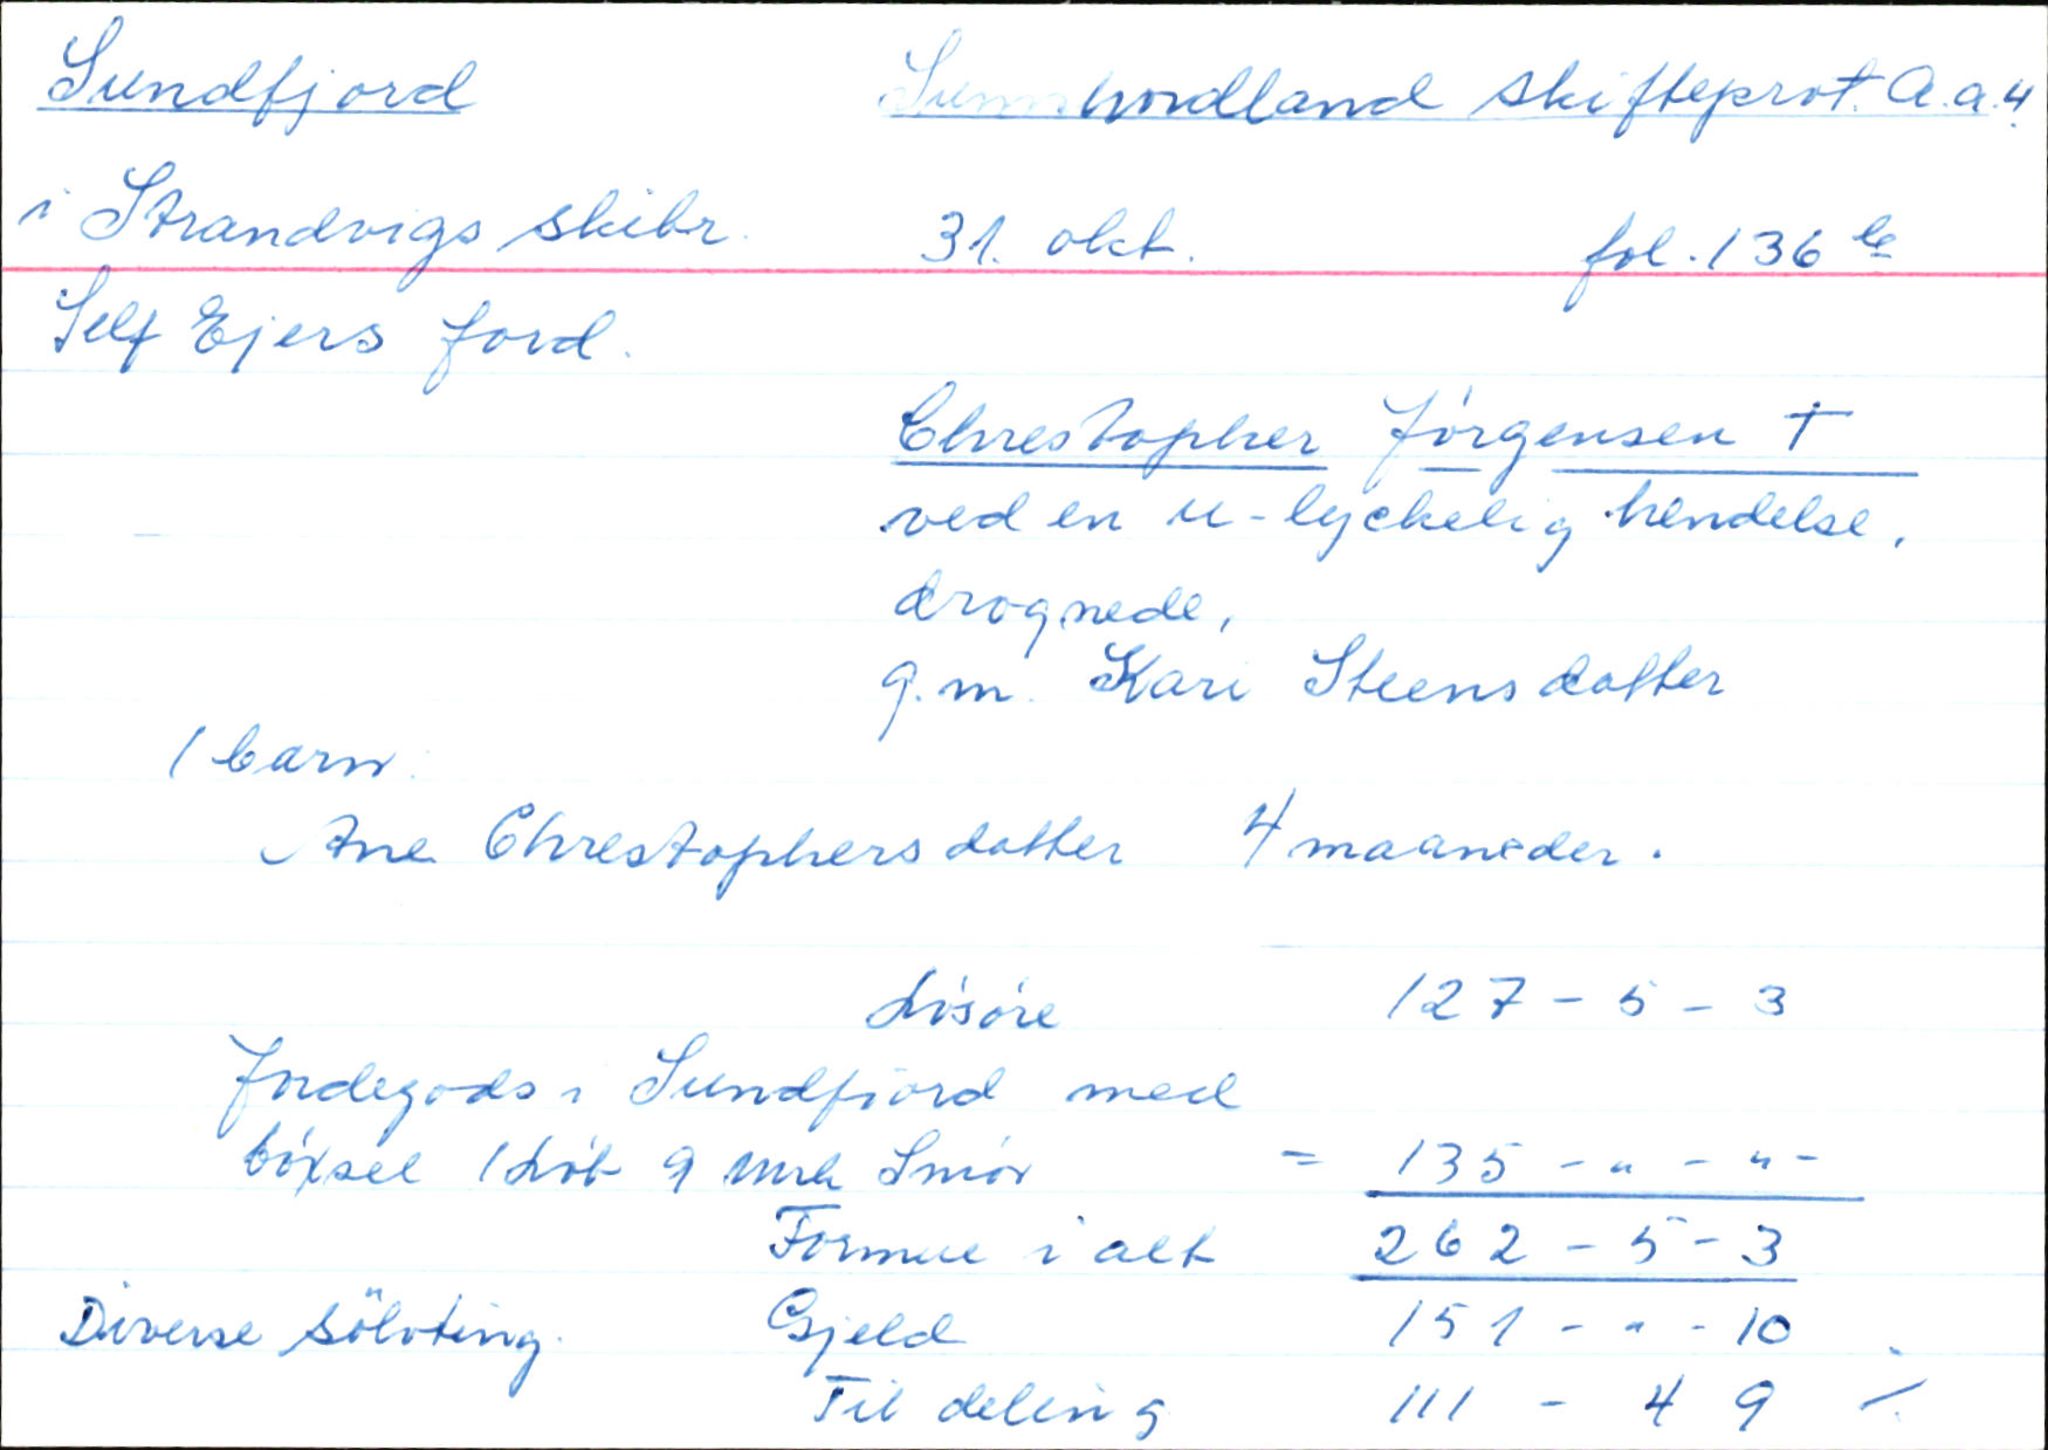 Sundfjord Sunnhordland skifteprot. A.a.4.
i Strandvigs skibr. 31. okt. fol. 136 b
Self Ejers Jord.
Chrestopher Jórgensen †
ved en u-lyckelig hendelse,
drognede,
g. m. Kari Steensdatter
1 barn:
Ane Chrestophersdatter 4 maaneder.
Lósóre 127 - 5 - 3
Jordegods i Sundfiord med
bóxsel 1 Lób 9 mrk Smór = 135 - " - " -
Formue i alt 262 - 5 - 3
Diverse sölvting. Gjeld 151 - " - 10
Til deling 111 - 4 9 /.